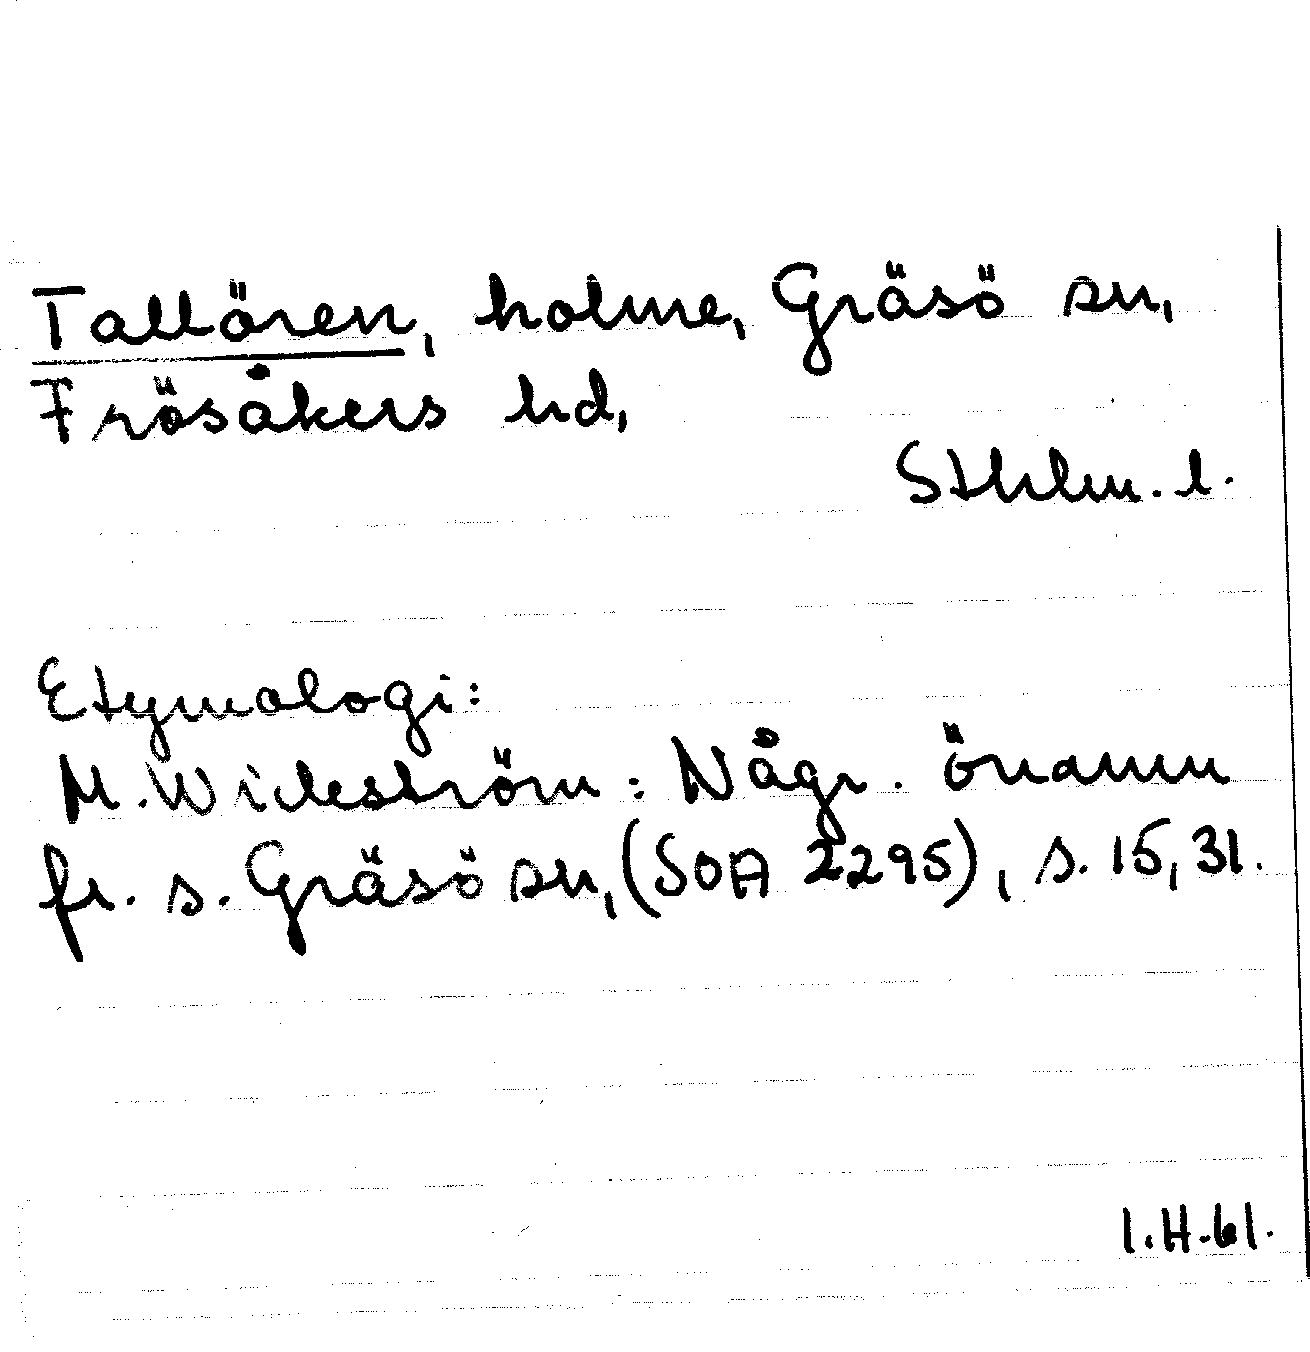 Tallören, holme, Gräsö sn,
Frösåkers hd,
Sthlm. l.
Etymologi:
M. Wideström: Någr. önamn
fr. s. Gräsö sn, (SOA 2295), s. 15, 31.
I.H.61.